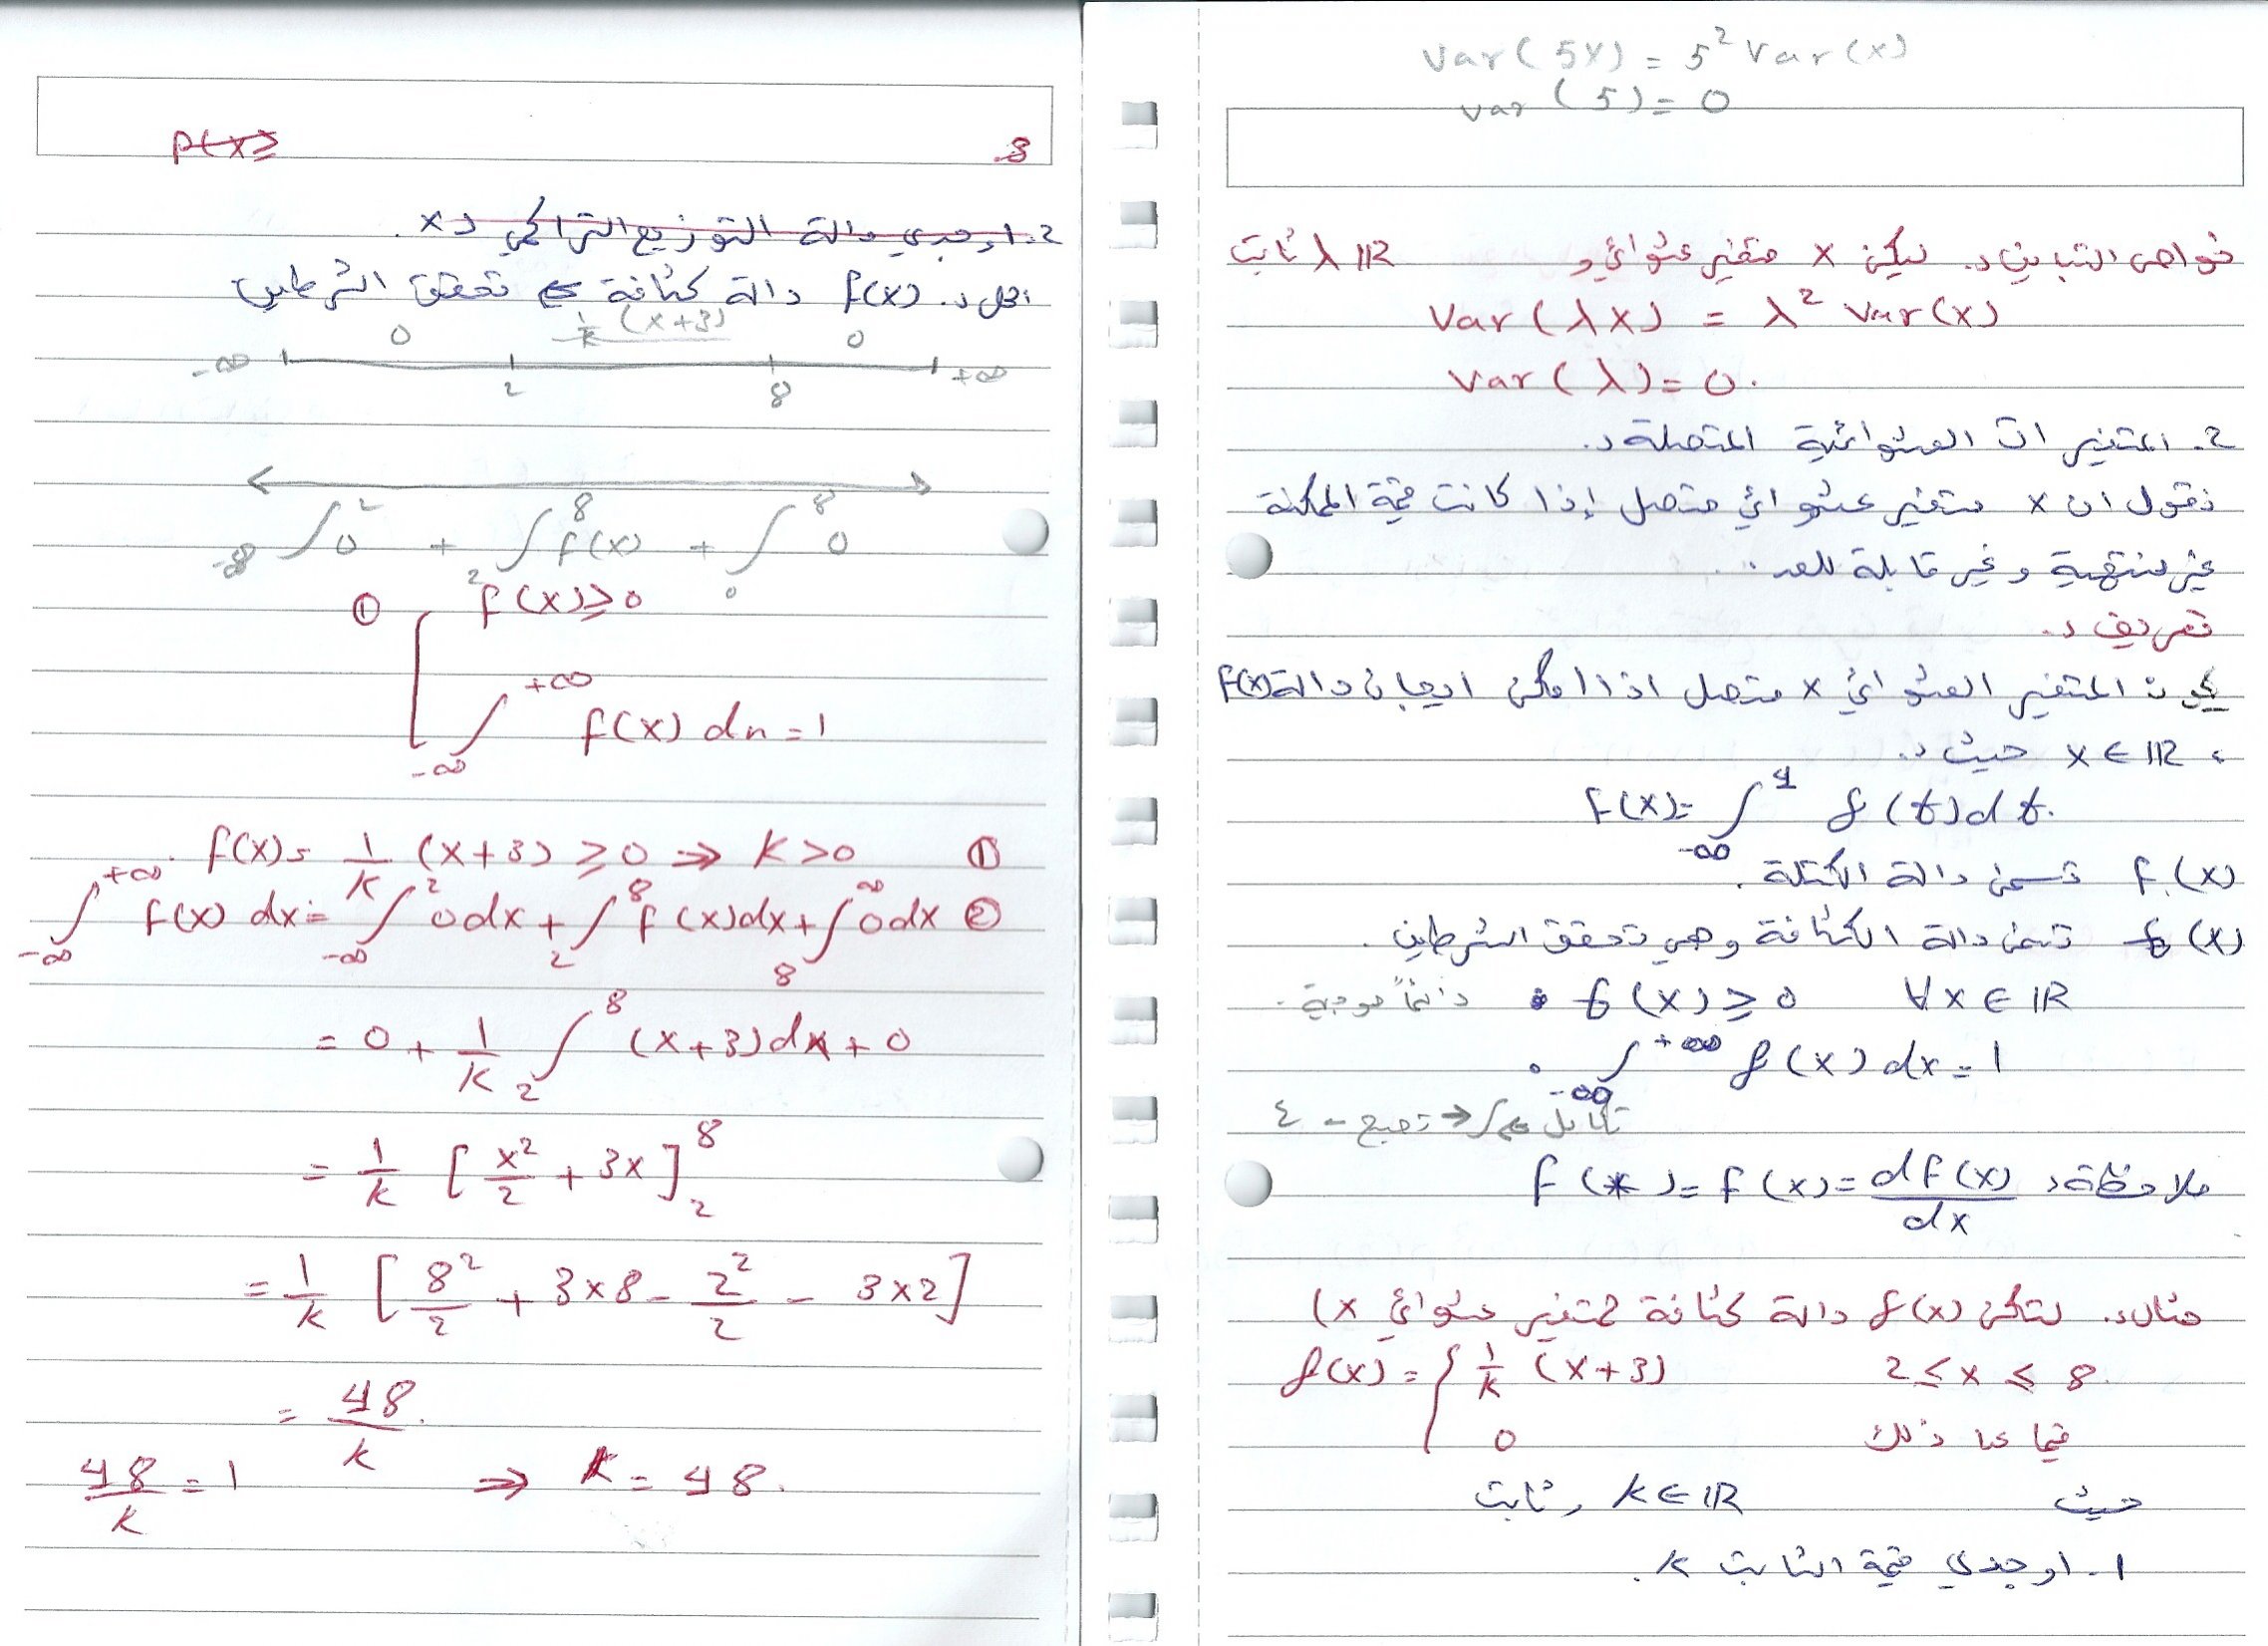 Var(5X) = 5² Var(x)
Var(5) = 0
خواص التباين د. ليكن x متغير عشوائي و λ ∈ IR ثابت
Var(λX) = λ² Var(x)
Var(λ) = 0.
2. المتغيرات العشوائية المتصلة د.
نقول ان x متغير عشوائي متصل إذا كانت قيمة الممكنة
غير منتهية وغير قابلة للعد.
تعريف د.
يكون المتغير العشوائي x متصل اذا امكن ايجاد دالة F(x)
، x ∈ IR حيث د.
F(x) = ∫ -∞ f(t)dt.
F(x) تسمى دالة الكتلة.
f(x) تسمى دالة الكثافة وهي تحقق الشرطين.
• f(x) ≥ 0 ∀x ∈ IR دائماً موجبة.
• ∫ -∞ +∞ f(x) dx = 1
تكامل ∫ → تجميع - ع
ملاحظة د F( )= f(x) = dF(x)/dx
مثال د. لتكن f(x) دالة كثافة لمتغير عشوائي x)
f(x) = { 1/k (x+3) 2 ≤ x ≤ 8.
0 فيما عدا ذلك
حيث k ∈ IR , ثابت
1. اوجدي قيمة الثابت k.
P(x≥ .8
2. اوجدي دالة التوزيع التراكمي د x.
الحل د. f(x) دالة كثافة تحقق الشرطين
0 1/k (x+3) 0
-∞ 2 8 +∞
-∞ ∫² 0 + 2 ∫⁸ f(x) + 0 ∫⁸ 0
① f(x) ≥ 0
∫ -∞ +∞ f(x) dn = 1
f(x) = 1/k (x+3) ≥ 0 ⇒ k > 0 ①
∫ -∞ +∞ f(x) dx = ∫ -∞ 2 0dx + ∫ 2 8 f(x)dx + ∫ 8 ∞ 0dx ②
= 0 + 1/k ∫ 2 8 (x+3)dx + 0
= 1/k [x²/2 + 3x] 8 2
= 1/k [8²/2 + 3×8 - 2²/2 - 3×2]
= 48/k.
48/k = 1 ⇒ k = 48.